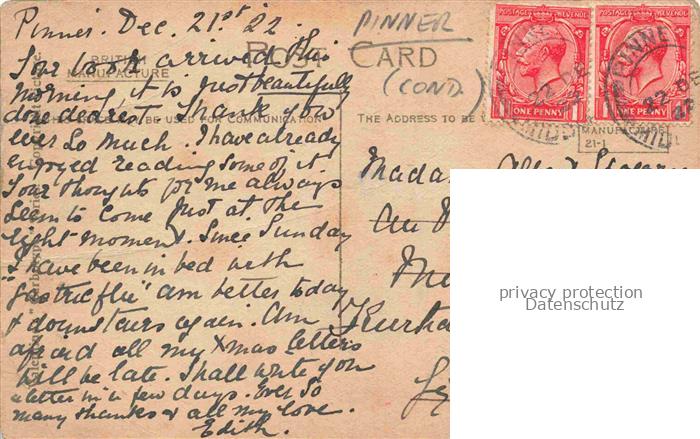 Pinner. Dec. 21st 22.
PINNER
(COND)
POST CARD
BRITISH
MANUFACTURE
Your book arrived this
morning it is just beautifully
done dearest thank you
ever so much. I have already
enjoyed reading some of it
Your thoughts for me always
seem to come just at the
right moment. Since Sunday
I have been in bed with
"gastric flu" am better today
& downstairs again. Am
afraid all my Xmas letters
will be late. Shall write you
a letter in a few days. Ever so
many thanks & all my love.
Edith.
BE USED FOR COMMUNICATION
THE ADDRESS TO BE
Madam
POSTAGE REVENUE
ONE PENNY
POSTAGE REVENUE
ONE PENNY
PINNE
22 DE
MIDD
privacy protection
Datenschutz